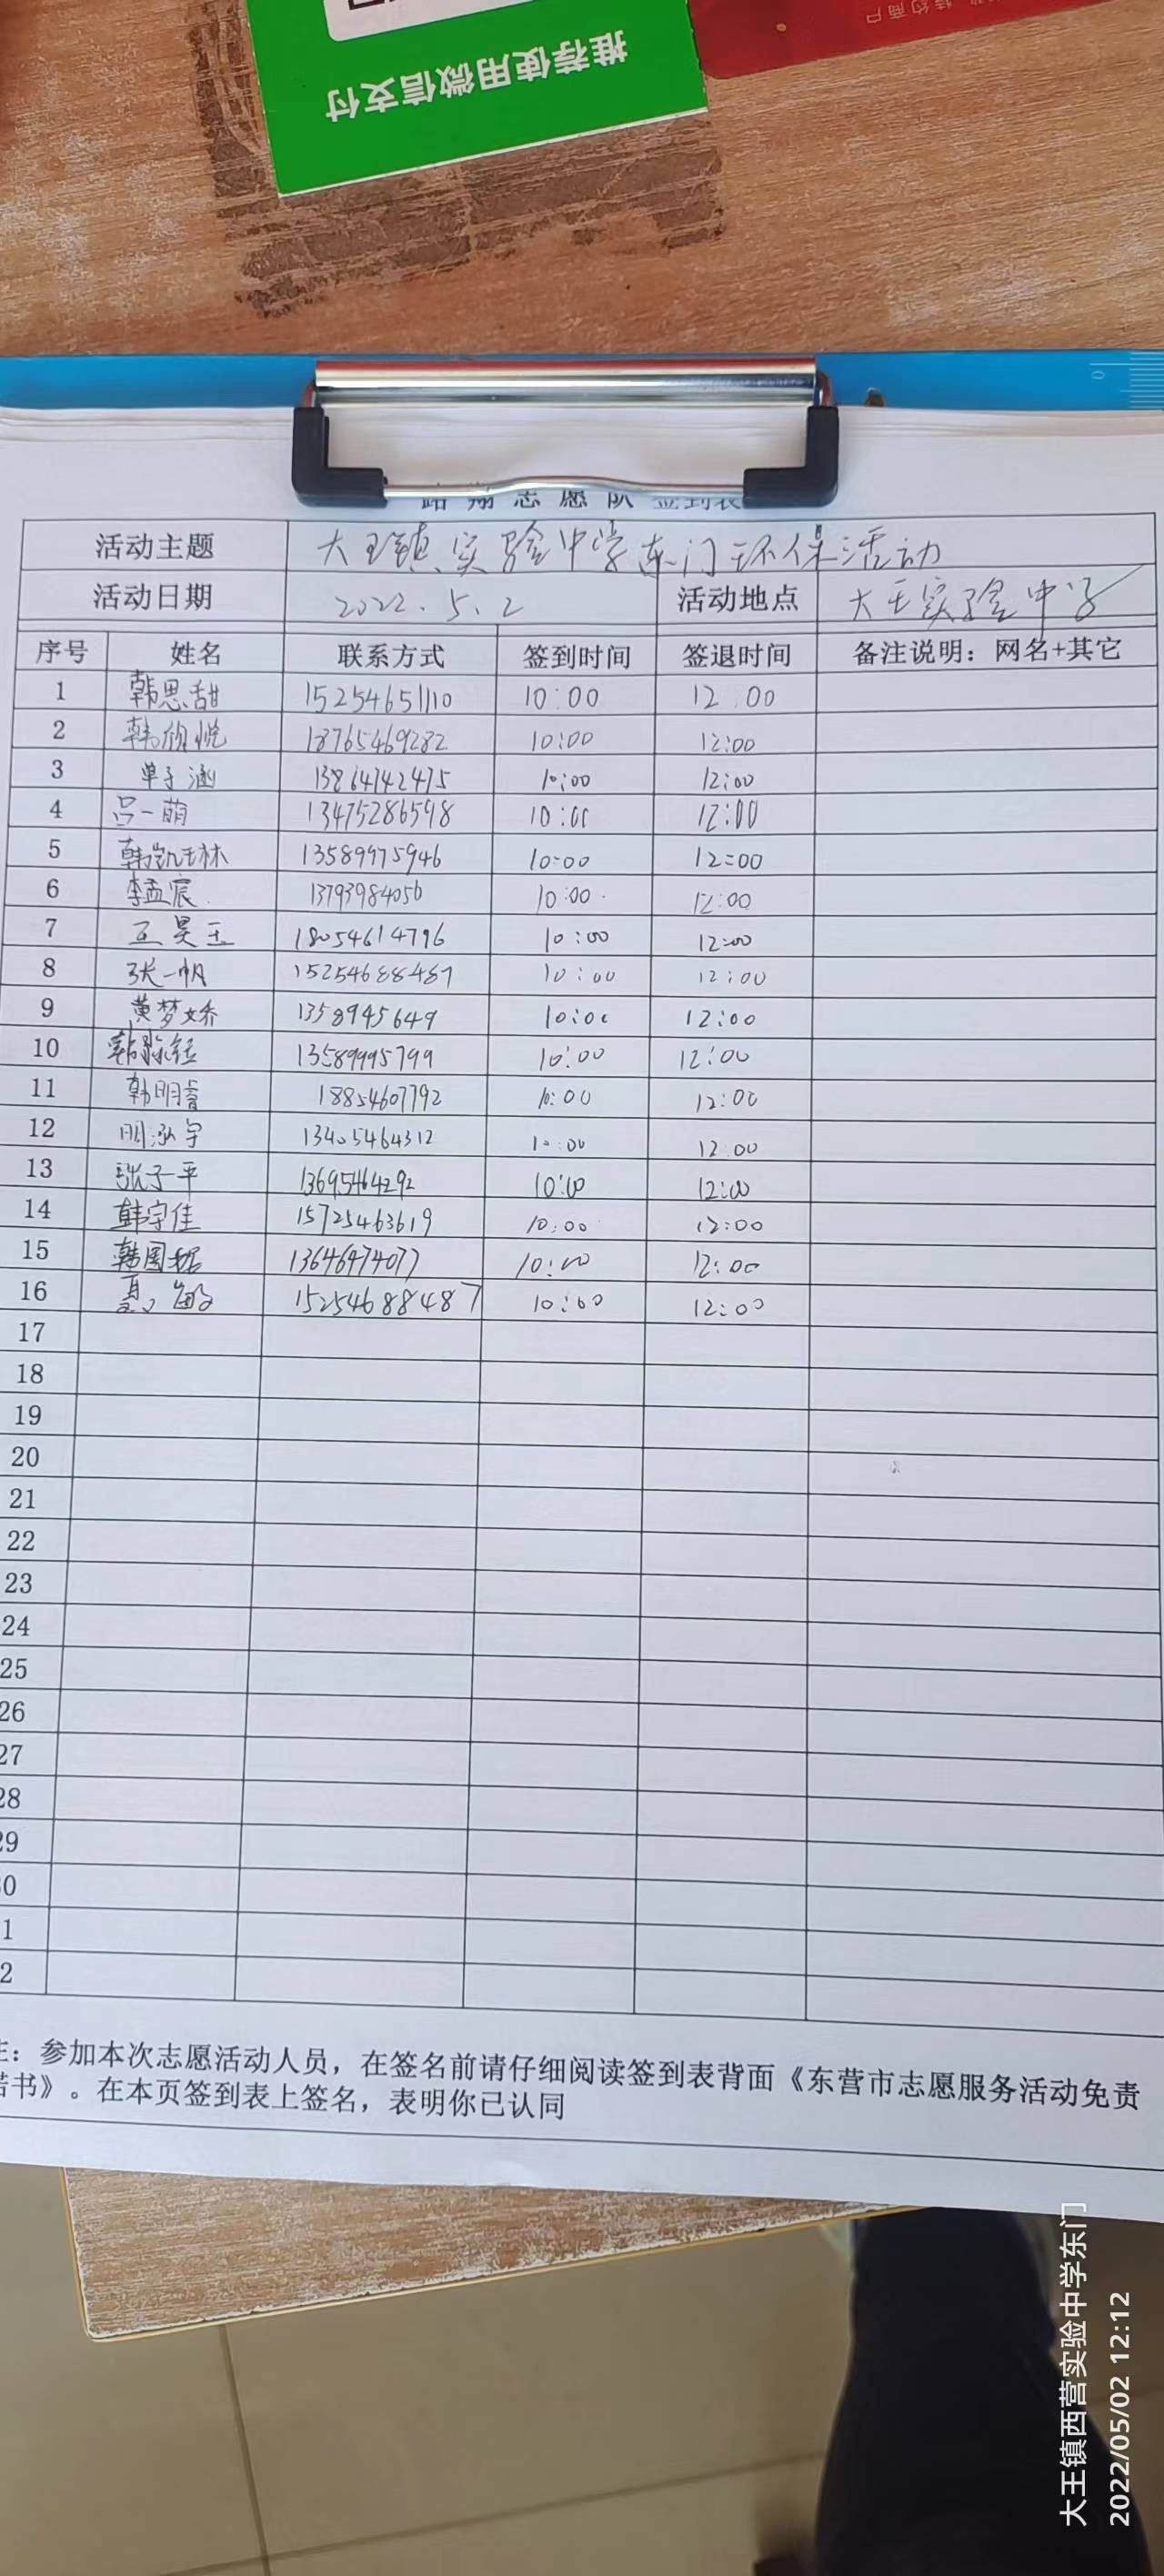 推荐使用微信支付
特约商户
志愿队签到表
活动主题 大王镇实验中学东门环保活动
活动日期 2022.5.2 活动地点 大王实验中学
序号 姓名 联系方式 签到时间 签退时间 备注说明：网名+其它
1 韩思甜 15254651110 10:00 12:00
2 韩欣悦 18765469282 10:00 12:00
3 单子涵 13864742475 10:00 12:00
4 吕一萌 13475286598 10:00 12:00
5 韩凯林 13589975946 10:00 12:00
6 李孟宸 13793984050 10:00 12:00
7 王昊玉 18054614796 10:00 12:00
8 张一帆 15254688487 10:00 12:00
9 黄梦娇 1358945649 10:00 12:00
10 13589995799 10:00 12:00
11 韩明睿 18854607792 10:00 12:00
12 明泓宇 13405464312 10:00 12:00
13 张子平 13695464292 10:00 12:00
14 韩宇佳 15725463619 10:00 12:00
15 13646474077 10:00 12:00
16 15254688487 10:00 12:00
17
18
19
20
21
22
23
24
25
26
27
28
29
0
1
2
注：参加本次志愿活动人员，在签名前请仔细阅读签到表背面《东营市志愿服务活动免责
诺书》。在本页签到表上签名，表明你已认同
大王镇西营实验中学东门
2022/05/02 12:12